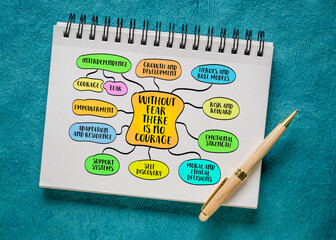 INTERDEPENDENCE
GROWTH AND
DEVELOPMENT
HEROES AND
ROLE MODELS
COURAGE
FEAR
WITHOUT
FEAR
THERE
IS NO
COURAGE
RISK AND
REWARD
EMPOWERMENT
ADAPTATION
AND RESIDENCE
EMOTIONAL
STRENGTH
SUPPORT
SYSTEMS
SELF
DISCOVERY
MORAL AND
ETHICAL
DECISIONS